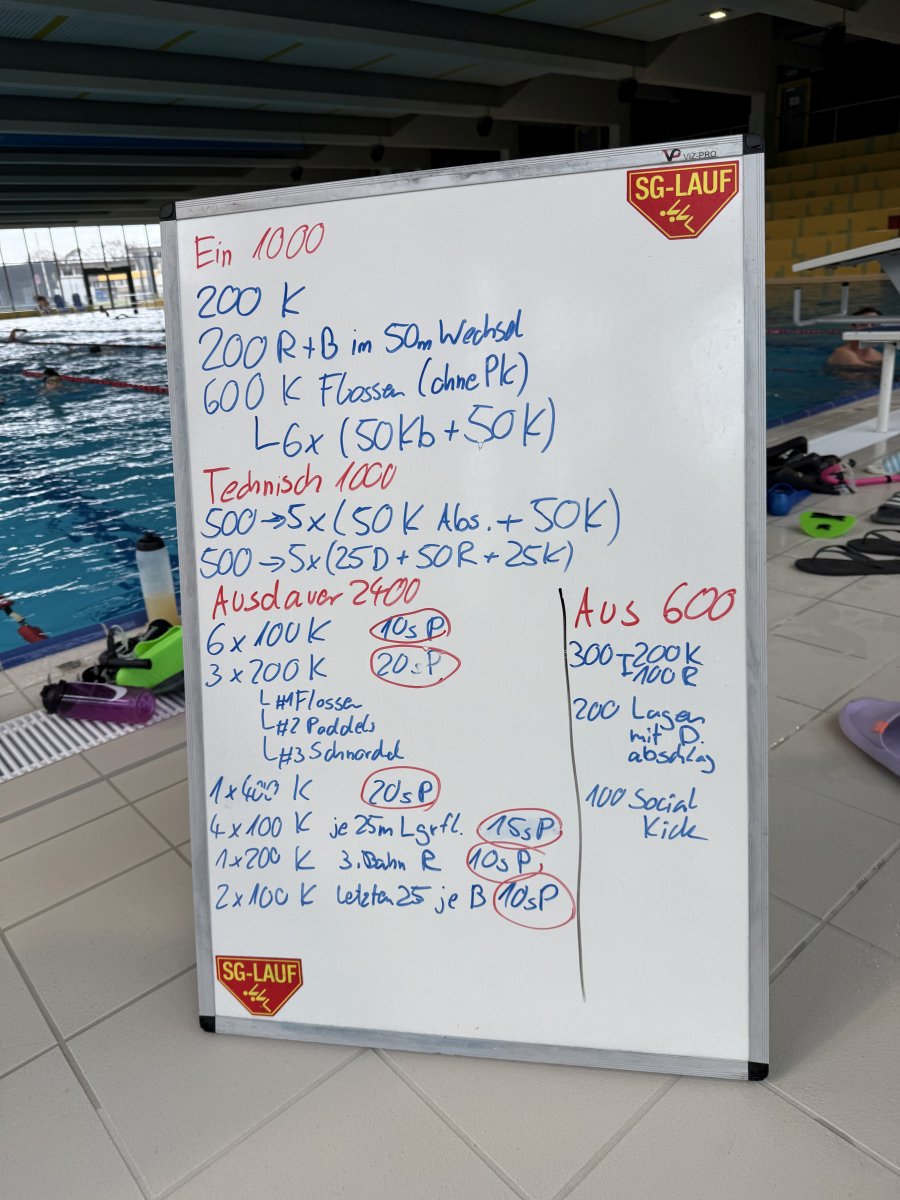 VIZ-PRO
SG-LAUF
Ein 1000
200 K
200 R+B im 50m Wechsel
600 K Flossen (ohne Pk)
6x (50Kb + 50K)
Technisch 1000
500 → 5x (50 K Abs. + 50K)
500 → 5x (25D + 50R + 25K)
Ausdauer 2400
6x100K 10sP
3x200 K 20sP
#1 Flossen
#2 Paddels
#3 Schnorchel
1x400 K 20sP
4x100 K je 25m Lgrfl. 15sP
1x200 K 3.Bahn R 10sP
2x100 K letzten 25 je B 10sP
Aus 600
300 200K
100 R
200 Lagen
mit D.
abschlag
100 Social
Kick
SG-LAUF